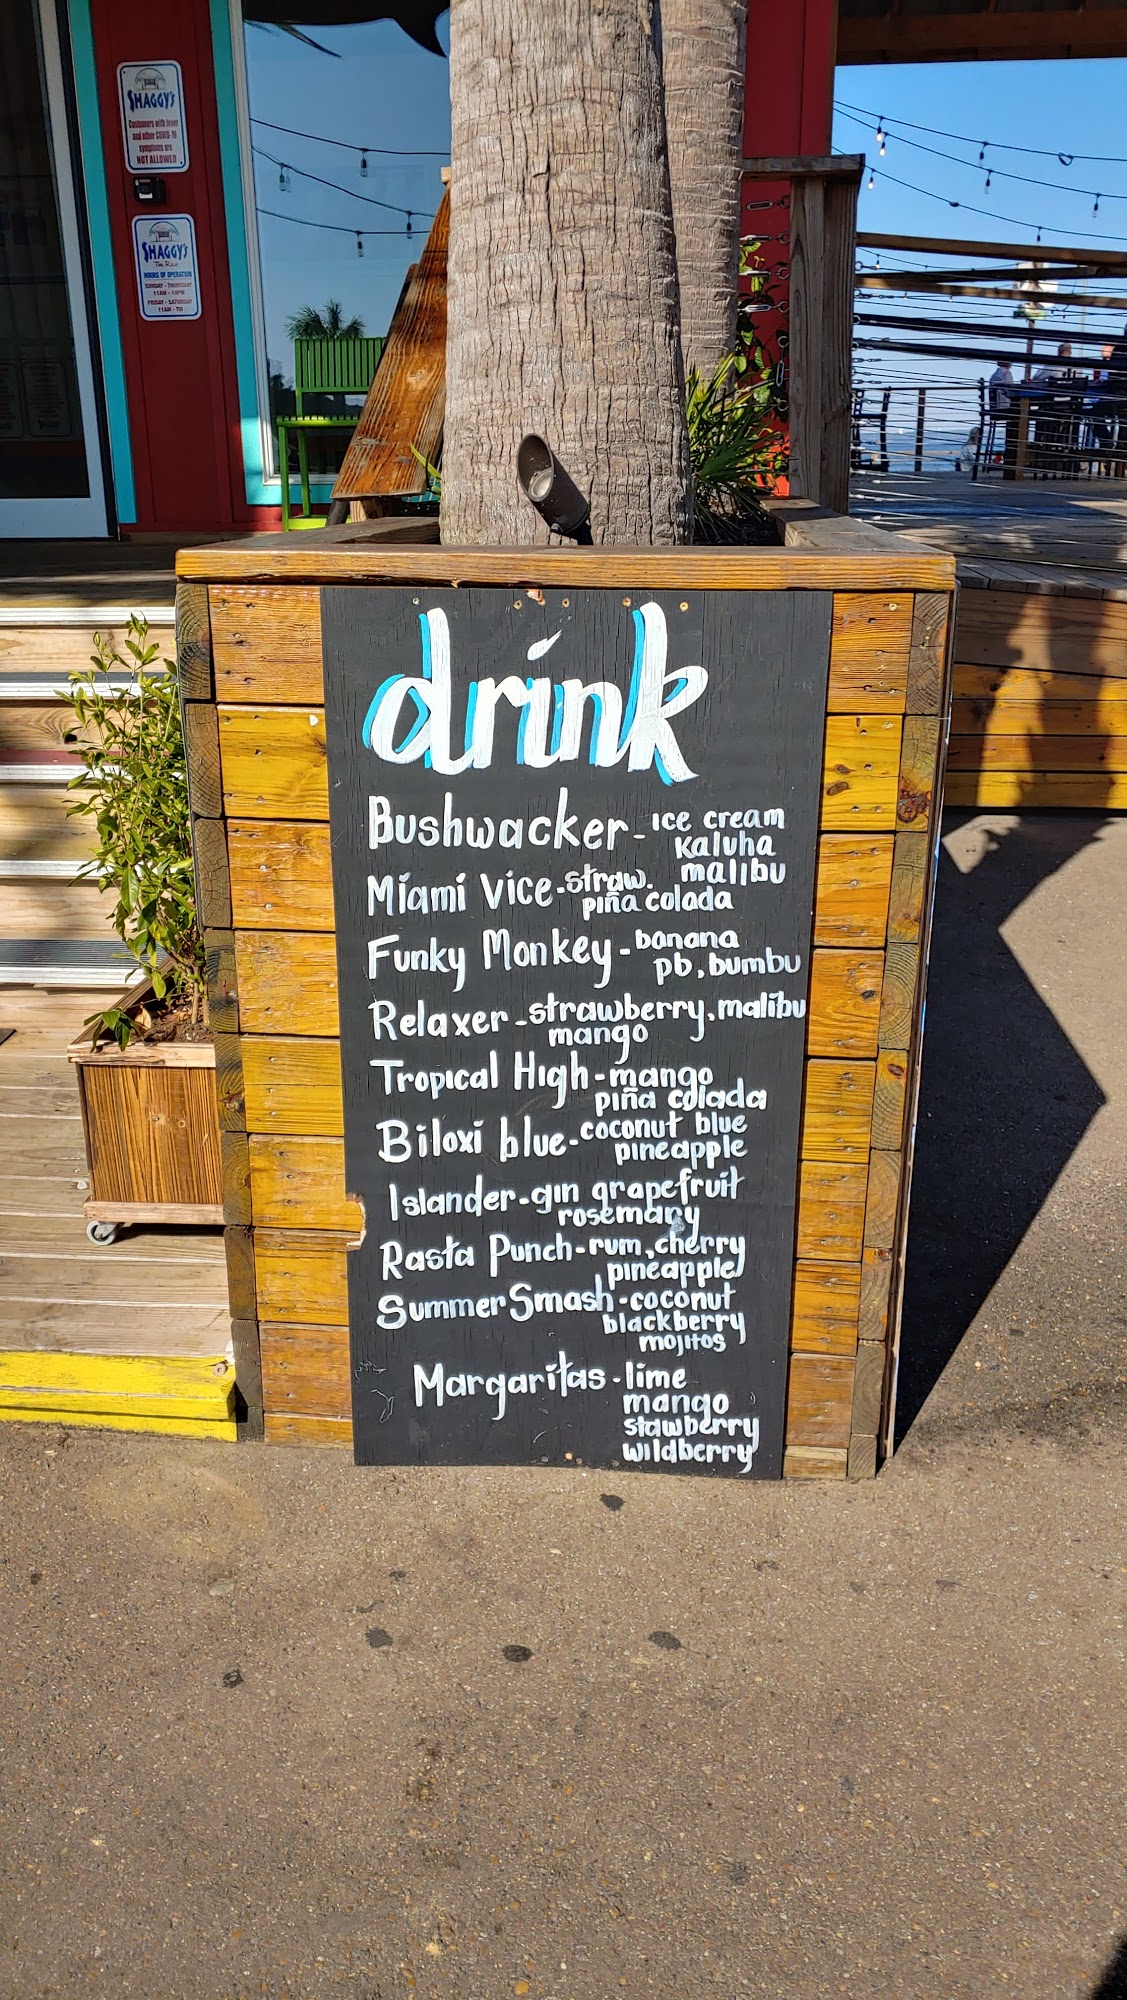 SHAGGY'S
Customers with fever
and other COVID-19
symptoms are
NOT ALLOWED
SHAGGY'S
HOURS OF OPERATION
SUNDAY - THURSDAY
11AM - 10PM
FRIDAY - SATURDAY
11AM - 'TIL
drink
Bushwacker - ice cream
Kaluha
malibu
Miami Vice - straw.
piña colada
Funky Monkey - banana
pb, bumbu
Relaxer - strawberry, malibu
mango
Tropical High - mango
piña colada
Biloxi blue - coconut blue
pineapple
Islander - gin grapefruit
rosemary
Rasta Punch - rum, cherry
pineapple
Summer Smash - coconut
blackberry
mojitos
Margaritas - lime
mango
stawberry
wildberry